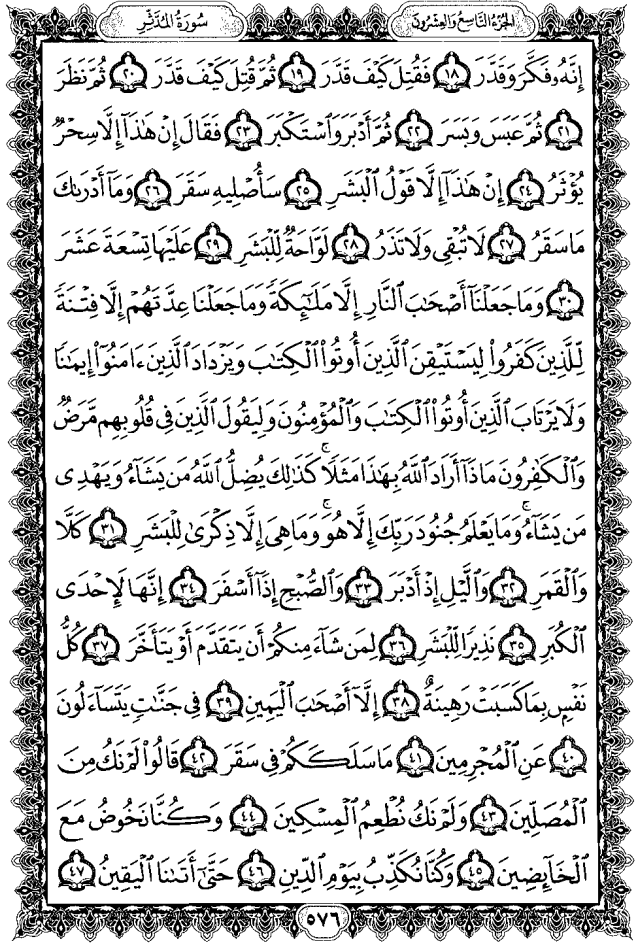 الجزء التاسع والعشرون
سورة المدثر
إِنَّهُۥ فَكَّرَ وَقَدَّرَ ١٨ فَقُتِلَ كَيْفَ قَدَّرَ ١٩ ثُمَّ قُتِلَ كَيْفَ قَدَّرَ ٢٠ ثُمَّ نَظَرَ
٢١ ثُمَّ عَبَسَ وَبَسَرَ ٢٢ ثُمَّ أَدْبَرَ وَٱسْتَكْبَرَ ٢٣ فَقَالَ إِنْ هَٰذَآ إِلَّا سِحْرٌ
يُؤْثَرُ ٢٤ إِنْ هَٰذَآ إِلَّا قَوْلُ ٱلْبَشَرِ ٢٥ سَأُصْلِيهِ سَقَرَ ٢٦ وَمَآ أَدْرَىٰكَ
مَا سَقَرُ ٢٧ لَا تُبْقِى وَلَا تَذَرُ ٢٨ لَوَّاحَةٌ لِّلْبَشَرِ ٢٩ عَلَيْهَا تِسْعَةَ عَشَرَ
٣٠ وَمَا جَعَلْنَآ أَصْحَٰبَ ٱلنَّارِ إِلَّا مَلَٰٓئِكَةً وَمَا جَعَلْنَا عِدَّتَهُمْ إِلَّا فِتْنَةً
لِّلَّذِينَ كَفَرُوا۟ لِيَسْتَيْقِنَ ٱلَّذِينَ أُوتُوا۟ ٱلْكِتَٰبَ وَيَزْدَادَ ٱلَّذِينَ ءَامَنُوٓا۟ إِيمَٰنًا
وَلَا يَرْتَابَ ٱلَّذِينَ أُوتُوا۟ ٱلْكِتَٰبَ وَٱلْمُؤْمِنُونَ وَلِيَقُولَ ٱلَّذِينَ فِى قُلُوبِهِم مَّرَضٌ
وَٱلْكَٰفِرُونَ مَاذَآ أَرَادَ ٱللَّهُ بِهَٰذَا مَثَلًا ۚ كَذَٰلِكَ يُضِلُّ ٱللَّهُ مَن يَشَآءُ وَيَهْدِى
مَن يَشَآءُ ۚ وَمَا يَعْلَمُ جُنُودَ رَبِّكَ إِلَّا هُوَ ۚ وَمَا هِىَ إِلَّا ذِكْرَىٰ لِلْبَشَرِ ٣١ كَلَّا
وَٱلْقَمَرِ ٣٢ وَٱلَّيْلِ إِذْ أَدْبَرَ ٣٣ وَٱلصُّبْحِ إِذَآ أَسْفَرَ ٣٤ إِنَّهَا لَإِحْدَى
ٱلْكُبَرِ ٣٥ نَذِيرًا لِّلْبَشَرِ ٣٦ لِمَن شَآءَ مِنكُمْ أَن يَتَقَدَّمَ أَوْ يَتَأَخَّرَ ٣٧ كُلُّ
نَفْسٍۭ بِمَا كَسَبَتْ رَهِينَةٌ ٣٨ إِلَّآ أَصْحَٰبَ ٱلْيَمِينِ ٣٩ فِى جَنَّٰتٍ يَتَسَآءَلُونَ
٤٠ عَنِ ٱلْمُجْرِمِينَ ٤١ مَا سَلَكَكُمْ فِى سَقَرَ ٤٢ قَالُوا۟ لَمْ نَكُ مِنَ
ٱلْمُصَلِّينَ ٤٣ وَلَمْ نَكُ نُطْعِمُ ٱلْمِسْكِينَ ٤٤ وَكُنَّا نَخُوضُ مَعَ
ٱلْخَآئِضِينَ ٤٥ وَكُنَّا نُكَذِّبُ بِيَوْمِ ٱلدِّينِ ٤٦ حَتَّىٰٓ أَتَىٰنَا ٱلْيَقِينُ ٤٧
٥٧٦